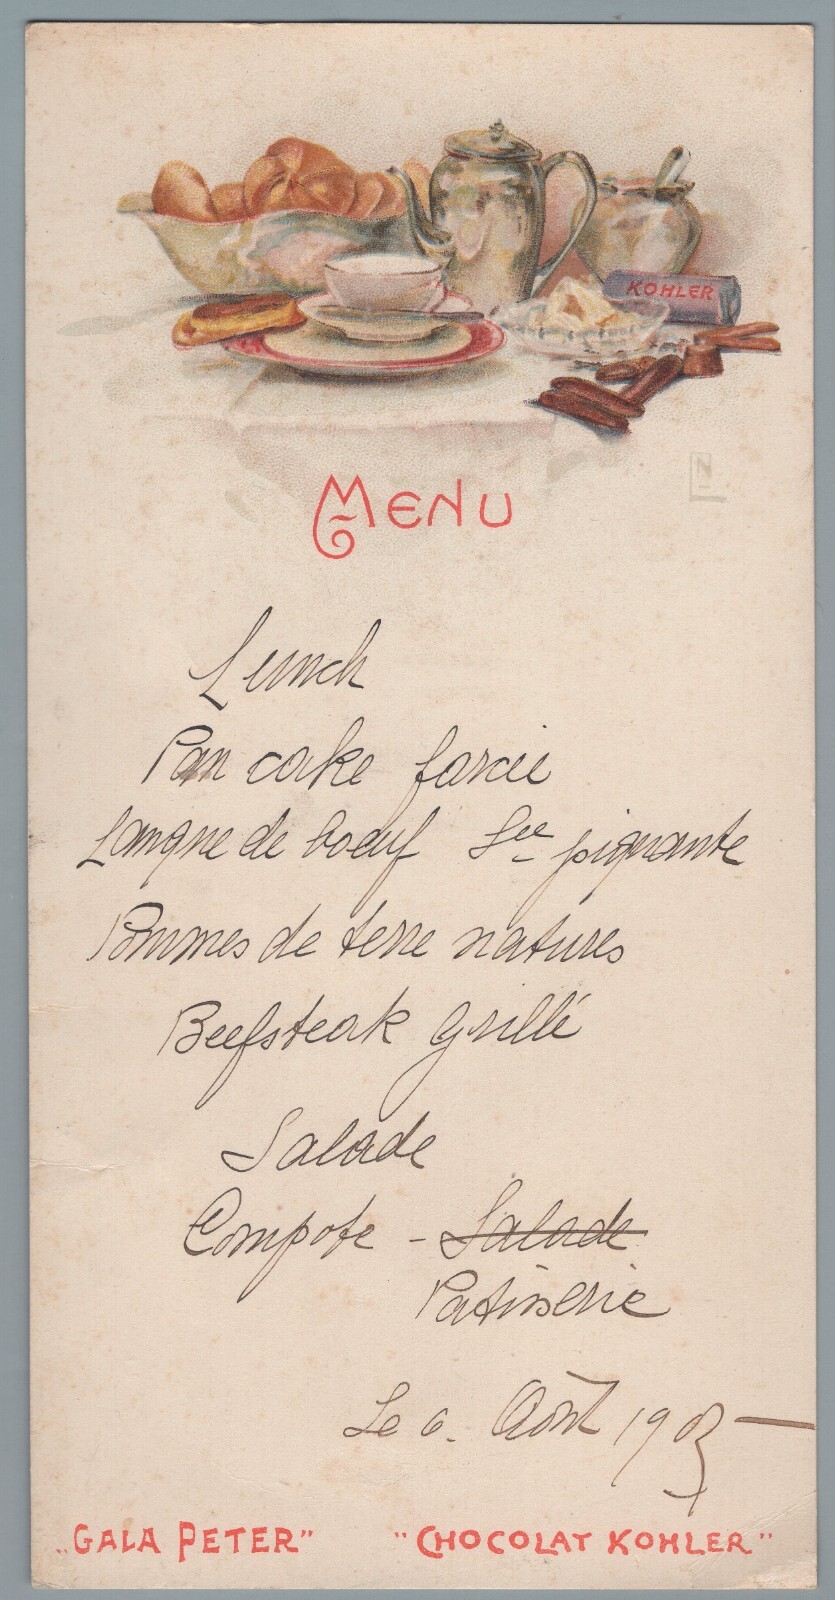 KOHLER
MENU
Lunch
Pan cake farcie
Langue de boeuf Sce piquante
Pommes de terre natures
Beefsteak Grillé
Salade
Compote - Salade
Patisserie
Le 6. Août 1903
„GALA PETER" "CHOCOLAT KOHLER"